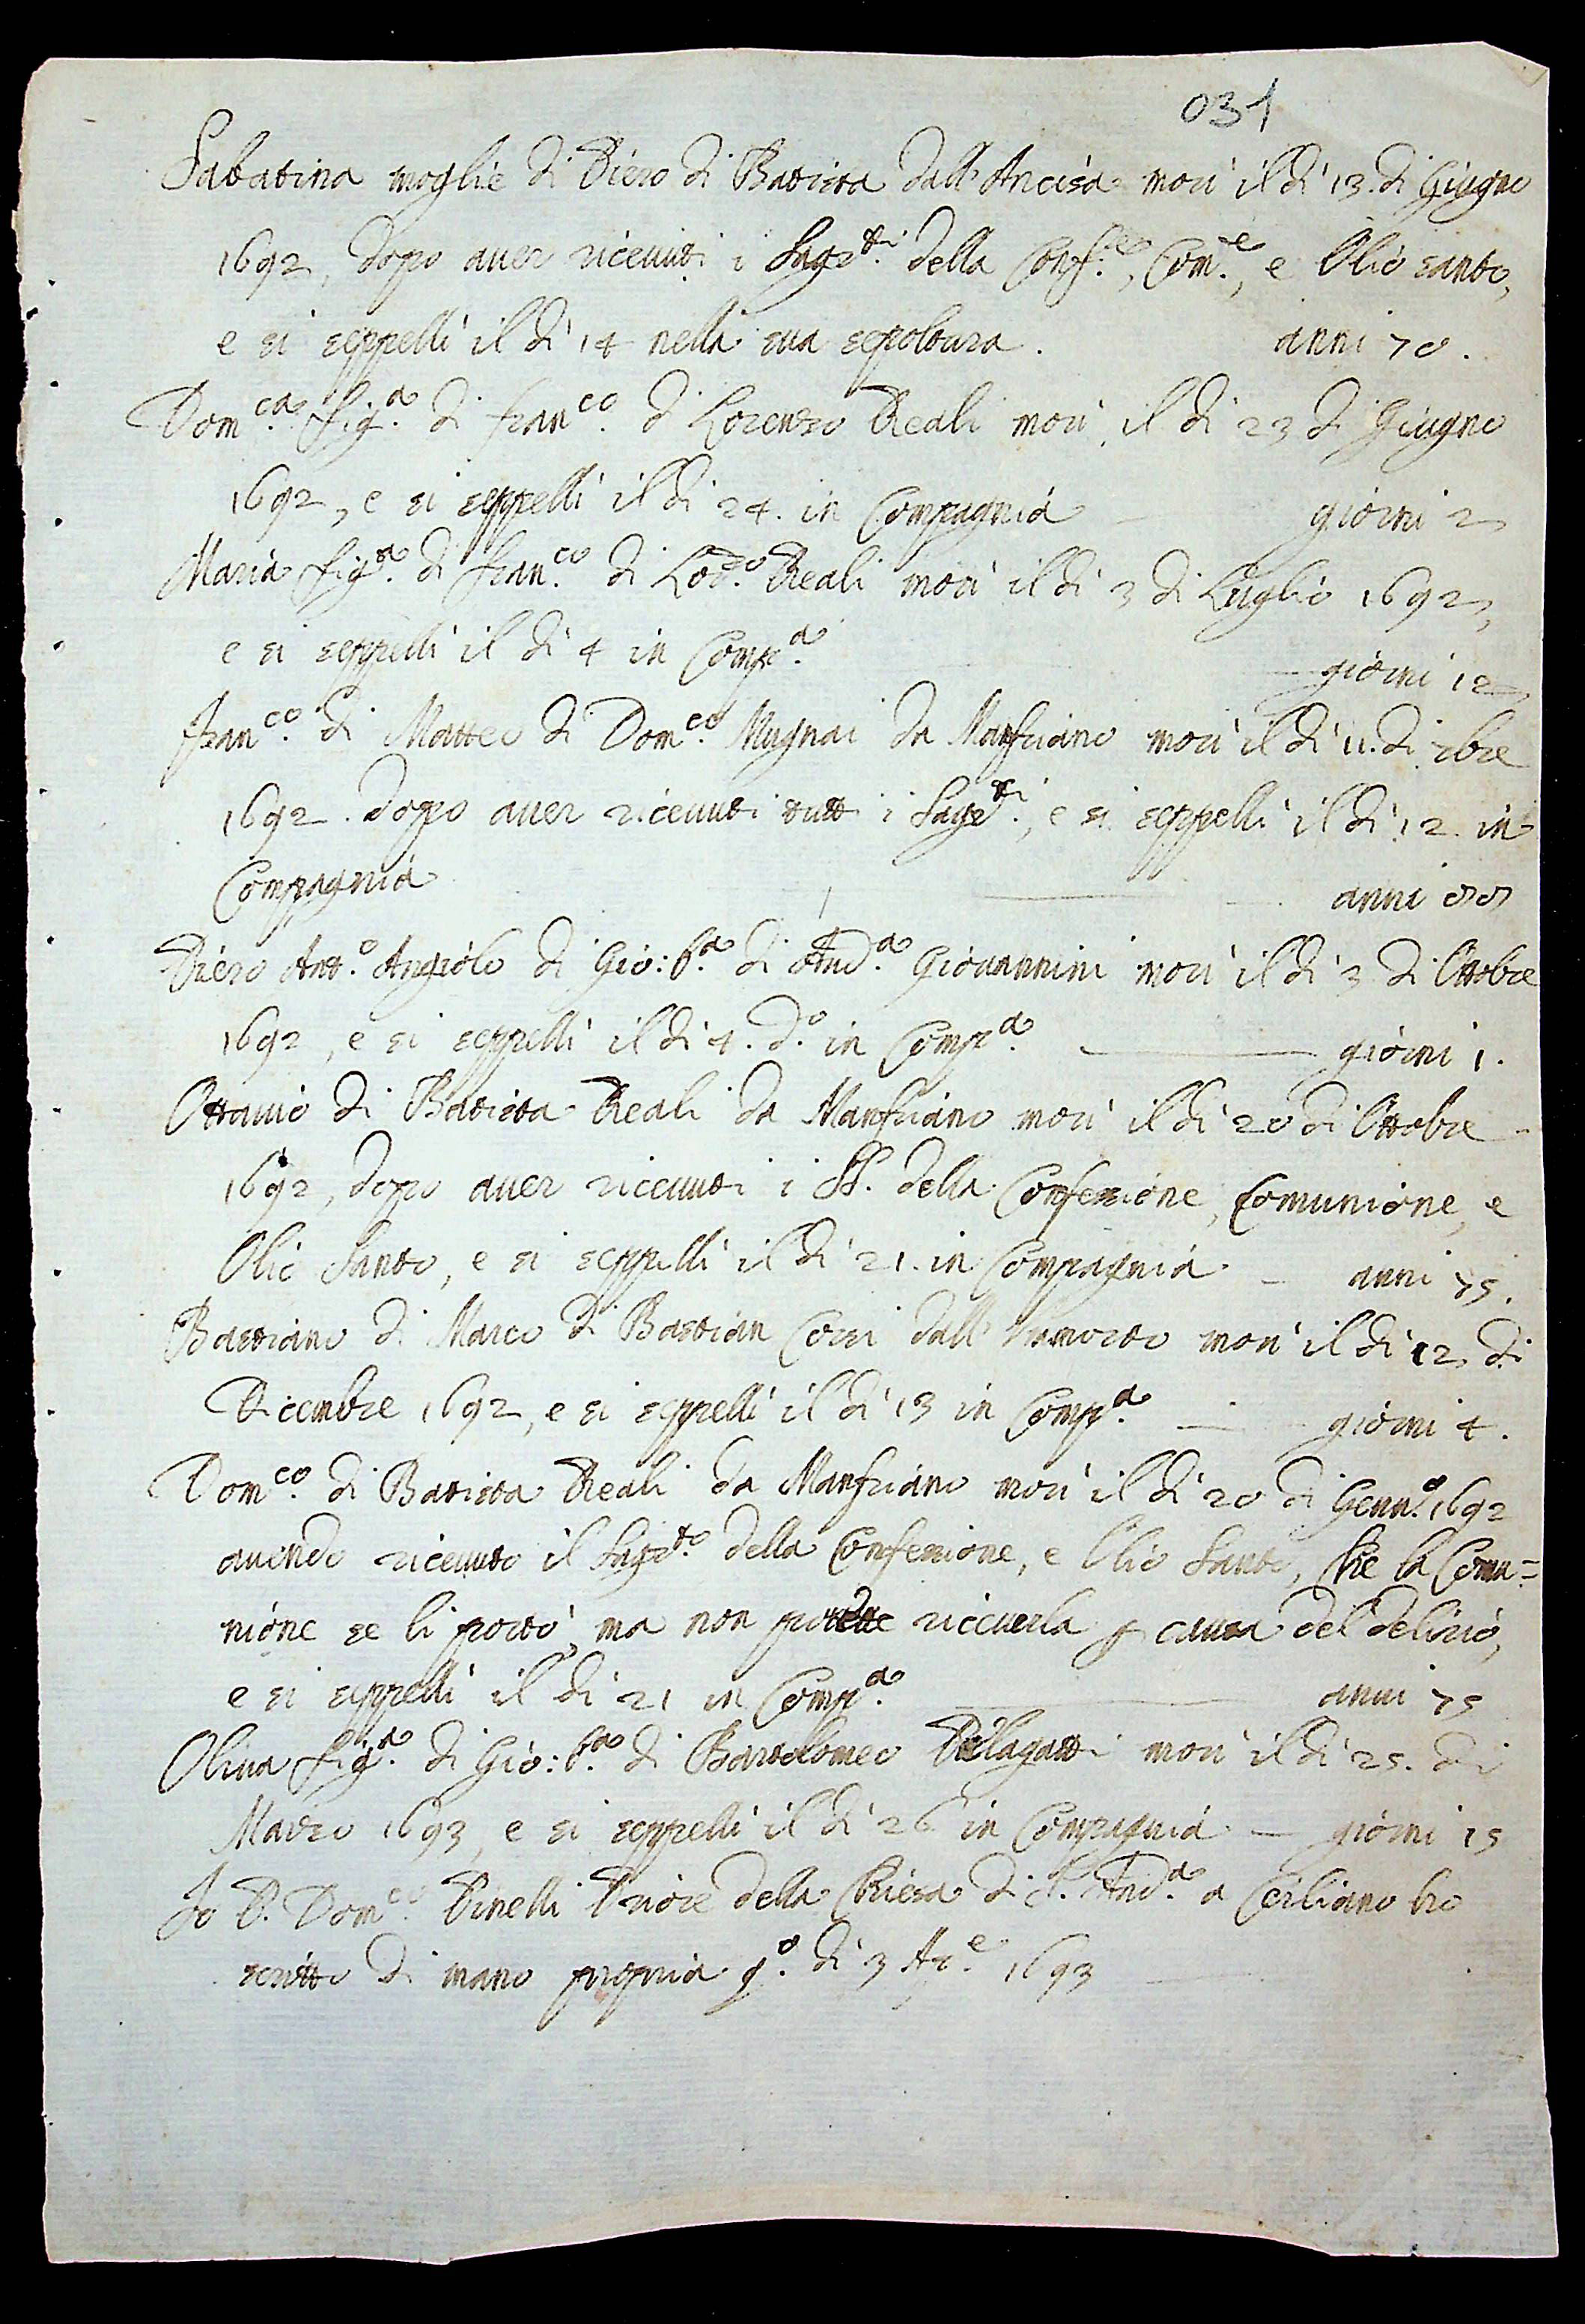 031
Sabatina moglie di Piero di Batista dall'Ancisa morì il dì 13. di Giugno
1692, dopo auer riceuuti i Sagr.ti della Conf.e, Com.e, e Olio santo,
e si seppellì il dì 14 nella sua sepoltura. anni 70.
Dom.ca fig.a di fran.co di Lorenzo Reali morì il dì 23 di Giugno
1692, e si seppellì il dì 24. in Compagnia giorni 2
Maria fig.a di fran.co di Lor.o Reali morì il dì 3 di Luglio 1692,
e si seppellì il dì 4 in Comp.a giorni 12
Fran.co di Matteo di Dom.co Mugnai da Manfriano morì il dì 11. di 7bre
1692. dopo auer riceuuti tutti i Sagr.ti, e si seppellì il dì 12. in
Compagnia anni
Piero Ant.o Angiolo di Gio: b.a di And.a Giouannini morì il dì 3 di Ottobre
1692, e si seppellì il dì 4. d.o in Comp.a giorni 1.
Ottauio di Batista Reali da Manfriano morì il dì 20 di Ottobre
1692, dopo auer riceuuti i SS. della Confessione, Comunione, e
Olio Santo, e si seppellì il dì 21. in Compagnia anni 75.
Bastiano di Marco di Bastian Corsi dall' morì il dì 12 di
Dicembre 1692, e si seppellì il dì 13 in Comp.a giorni 4.
Dom.co di Batista Reali da Manfriano morì il dì 20 di Genn.o 1692
auendo riceuuto il Sagr.to della Confessione, e Olio Santo, che la Comu=
nione se li portò, ma non potette riceuerla p causa del delirio,
e si seppellì il dì 21 in Comp.a anni 75
Oliua fig.a di Gio: b.a di Bartolomeo Pelagatti morì il dì 25. di
Marzo 1693, e si seppellì il dì 26 in Compagnia giorni 15
Io P. Dom.co Pinelli Priore della Chiesa di S. And.a a Cerliano ho
scritto di mano propria q.o dì 3 Ap.e 1693